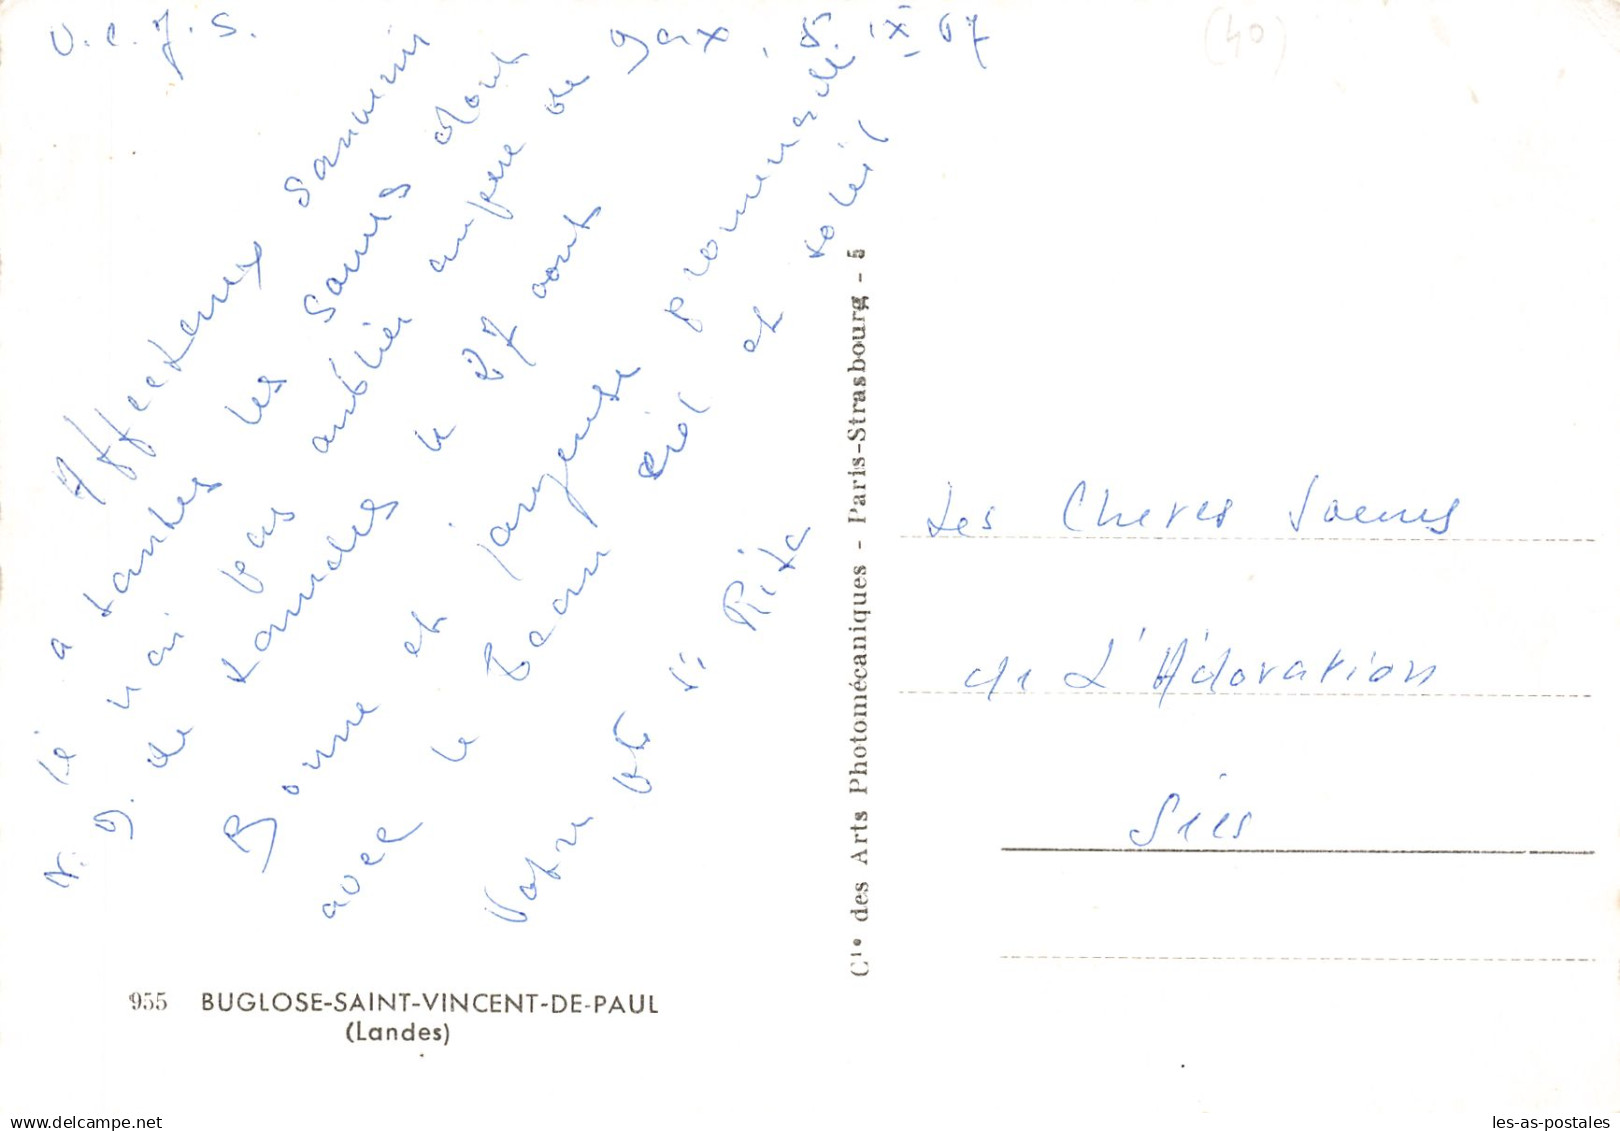 V. C. J. S.
Dax, 5. IX 67
(40)
Affectueux souvenir
à toutes les Sœurs dont
je n'ai pas oublié auprès de
N. D. de Lourdes le 27 aout
Bonne et joyeuse promenade
avec le Beau ciel et soleil
Votre pte Sr Rita
Les Cheres Soeurs
de L'Adoration
955 BUGLOSE-SAINT-VINCENT-DE-PAUL
(Landes)
Cie des Arts Photomécaniques - Paris-Strasbourg - 5
les-as-postales